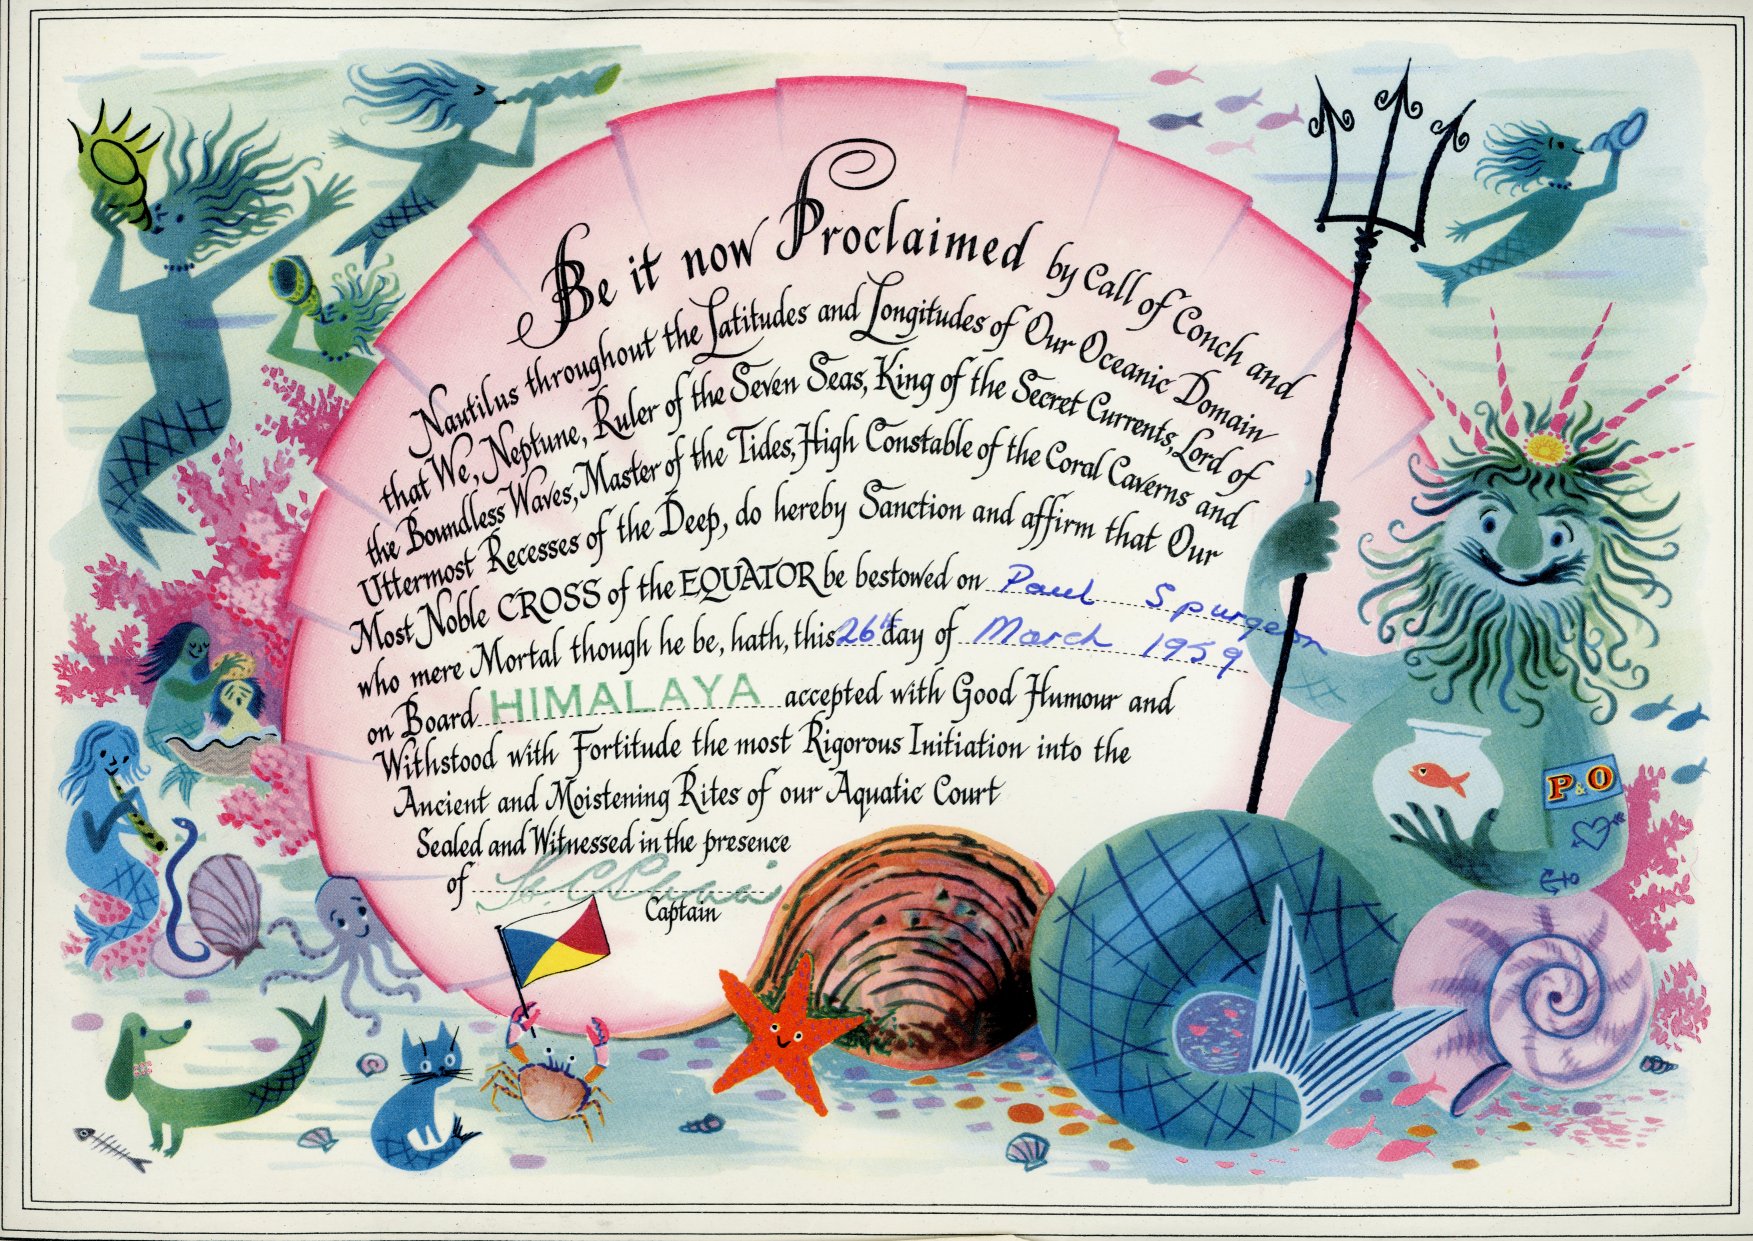 Be it now Proclaimed by Call of Conch and
Nautilus throughout the Latitudes and Longitudes of Our Oceanic Domain
that We, Neptune, Ruler of the Seven Seas, King of the Secret Currents, Lord of
the Boundless Waves, Master of the Tides, High Constable of the Coral Caverns and
Uttermost Recesses of the Deep, do hereby Sanction and affirm that Our
Most Noble CROSS of the EQUATOR be bestowed on Paul Spurgeon
who mere Mortal though he be, hath, this 26th day of March 1959
on Board HIMALAYA accepted with Good Humour and
Withstood with Fortitude the most Rigorous Initiation into the
Ancient and Moistening Rites of our Aquatic Court
Sealed and Witnessed in the presence
of
Captain
P&O